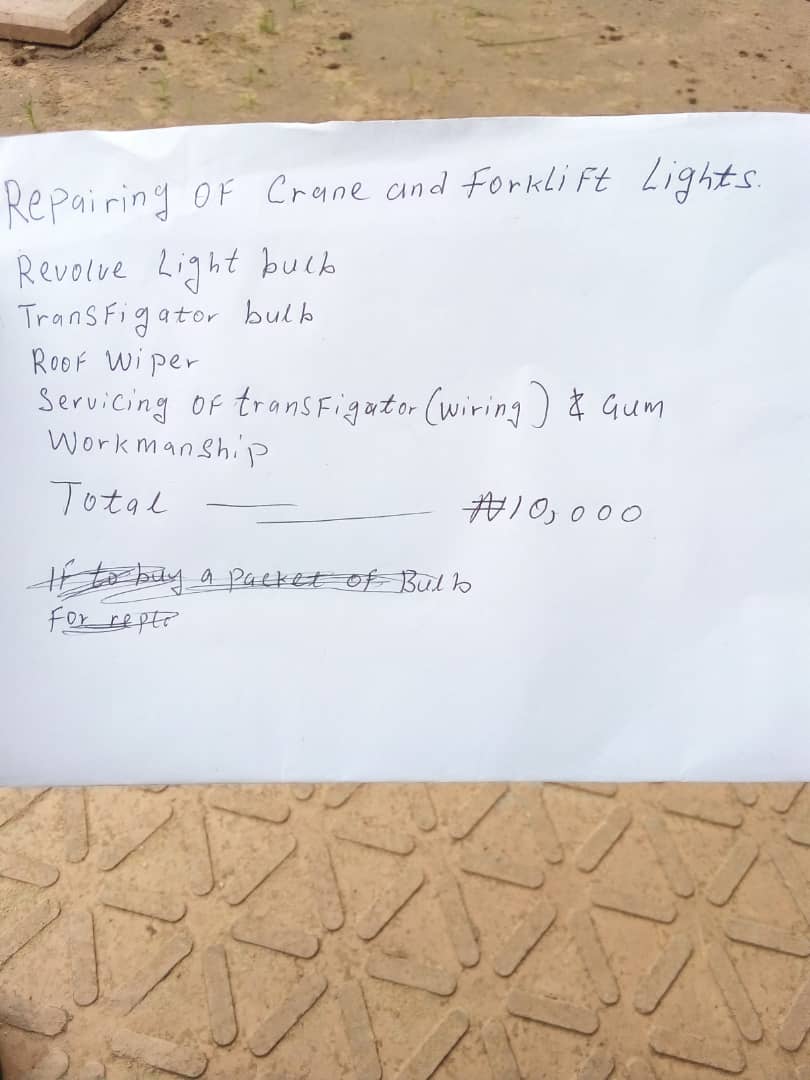 Repairing OF Crane and Forklift Lights.
Revolve Light bulb
Transfigator bulb
Roof Wiper
Servicing OF transFigator (wiring) & Gum
Workmanship
Total ₦10,000
If to buy a packet of Bulb
For